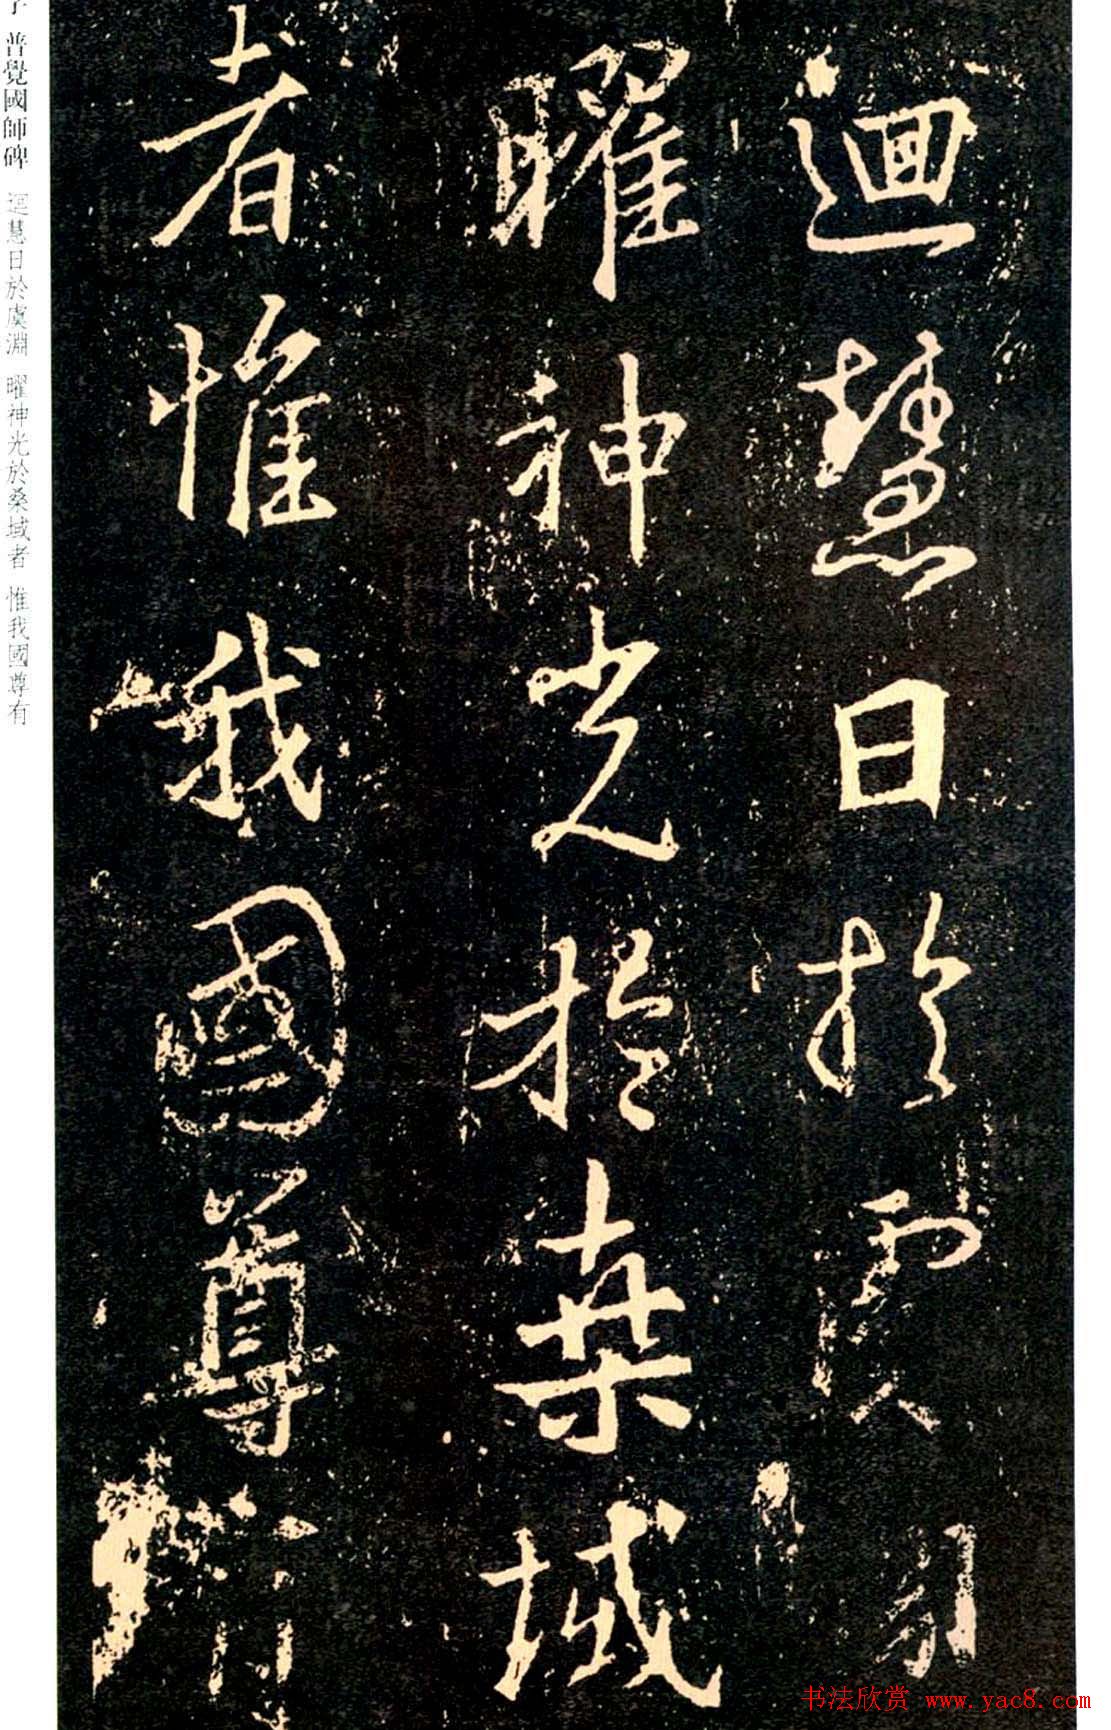 迴慧日於虞淵
曜神光於桑域
者惟我國尊有
普覺國師碑 迴慧日於虞淵 曜神光於桑域者 惟我國尊有
书法欣赏 www.yac8.com